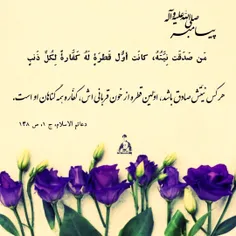 پیامبر صلی الله علیه و آله
مَن صَدَقَت نِیَّتُهُ، کانَت أوَّلُ قَطرَةٍ لَهُ کَفّارةً لِکُلِّ ذَنبٍ
هر کس نیتش صادق باشد، اولین قطره از خون قربانی اش، کفاره همه گناهان او است.
دعائم الاسلام، ج ۱، ص ۱۴۸